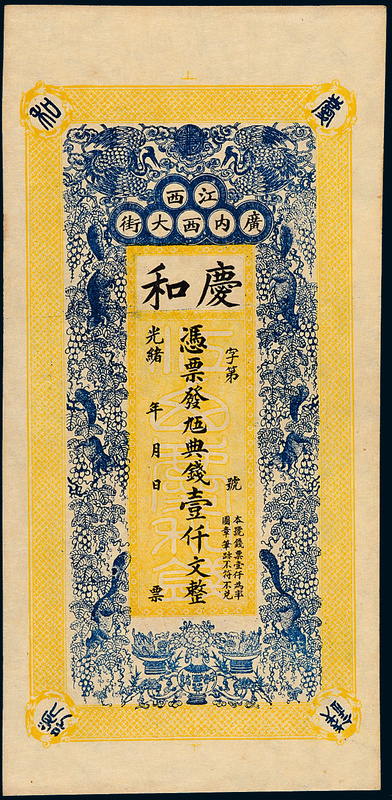 江西
廣內西大街
慶和
字第 號
本號錢票壹仟為率
圖章筆跡不符不兌
憑票發典錢壹仟文整
光緒 年 月 日 票